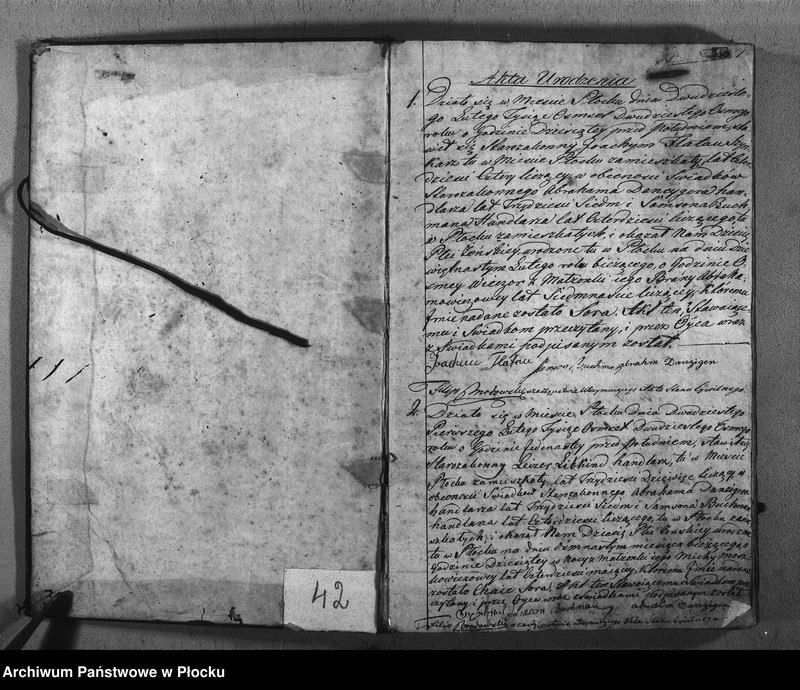 Akta Urodzenia
1. Działo się w Mieście Płocku dnia Dwudziestego
Lutego Tysiąc Osmset Dwudziestego Osmego
roku o godzinie Dziewiątey przed południem, sta
wił się Starozakonny Joachym Flatau Szyn
karz tu w Mieście Płocku zamieszkały, lat
dzieści Cztery liczący, w obecności Swiadków
Starozakonnego Abrahama Dancygera han
dlarza lat Trzydzieści Siedm i Samsona Buch
mana Handlarza lat Czterdzieści liczącego tu
w Płocku zamieszkałych, i okazał Nam Dziecię
Płci Żeńskiey, urodzone tu w Płocku na dniu Dzie
więtnastym Lutego roku bieżącego, o Godzinie O
smey Wieczor z Małżonki iego Brany Abraha
mowiczowy lat Siedmnaście liczącey, któremu
Imie nadane zostało Sora. Akt ten, Stawaiące
mu i Swiadkom przeczytany, i przez Oyca wraz
z Swiadkami podpisanym został.
Joachim Flatau Abrahm Danzigen
Filip Brodowski utrzymuiący Akta Stanu Cywilnego
2. Działo się w Mieście Płocku dnia Dwudziestego
Pierwszego Lutego Tysiąc Osmset Dwudziestego Osmego
roku o Godzinie Jedenastey przed południem, stawił się
Starozakonny Lewer Libkind handlarz, tu w Mieście
Płocku zamieszkały, lat Trzydzieści Dziewięć liczący w
obecności Swiadków Starozakonnego Abrahama Dancygera
handlarza lat Trzydzieści Siedm i Samsona Buchmana
handlarza lat Czterdzieści liczącego, tu w Płocku zamie
szkałych, i okazał Nam Dziecię Płci Żeńskiey urodzone
tu w Płocku na dniu Osmnastym miesiąca bieżącego o
Godzinie Dziesiątey w Nocy z Małżonki iego Michly Mosz
kowiczowy lat Czterdzieści maiącey, któremu Imie nadane
zostało Chaie Sora. Akt ten Stawaiącemu i Swiadkom prze
czytany i przez Oyca wraz z Swiadkami podpisanym został
Buchman Abrahm Danzigen
Filip Brodowski utrzymuiący Akta Stanu Cywilnego
42
Archiwum Państwowe w Płocku